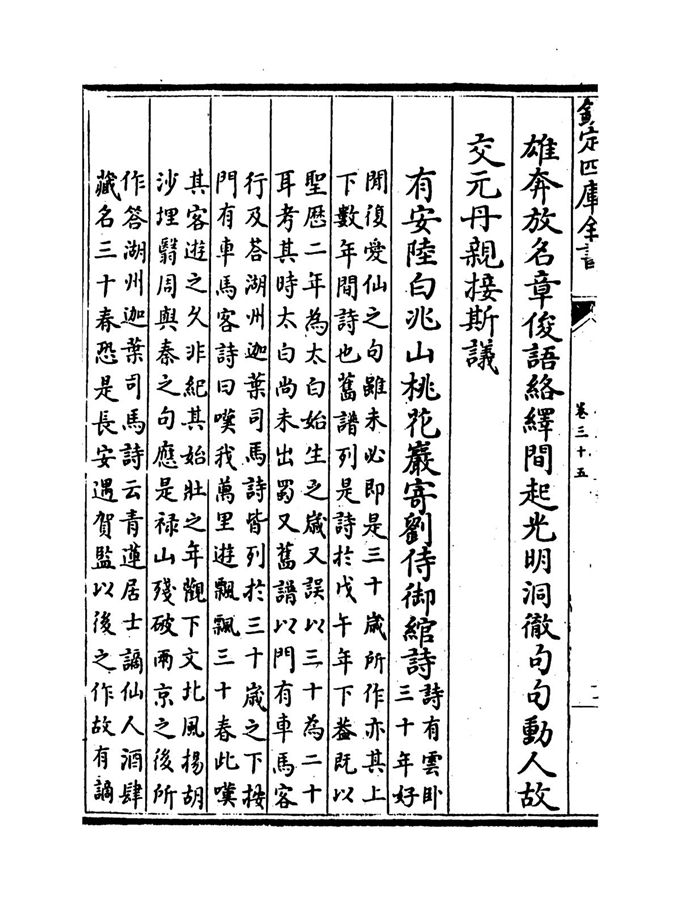 欽定四庫全書
卷三十五
雄奔放名章俊語絡繹間起光明洞徹句句動人故
交元丹親接斯議
有安陸白兆山桃花巖寄劉侍御綰詩
詩有雲卧
三十年好
閒復愛仙之句雖未必即是三十歲所作亦其上
下數年間詩也舊譜列是詩於戊午年下葢既以
聖厯二年為太白始生之歲又誤以三十為二十
耳考其時太白尚未出蜀又舊譜以門有車馬客
行及荅湖州迦葉司馬詩皆列於三十歲之下按
門有車馬客詩曰嘆我萬里遊飄飄三十春此嘆
其客遊之久非紀其始壯之年觀下文北風揚胡
沙埋翳周與秦之句應是禄山殘破兩京之後所
作答湖州迦葉司馬詩云青蓮居士謫仙人酒肆
藏名三十春恐是長安遇賀監以後之作故有謫